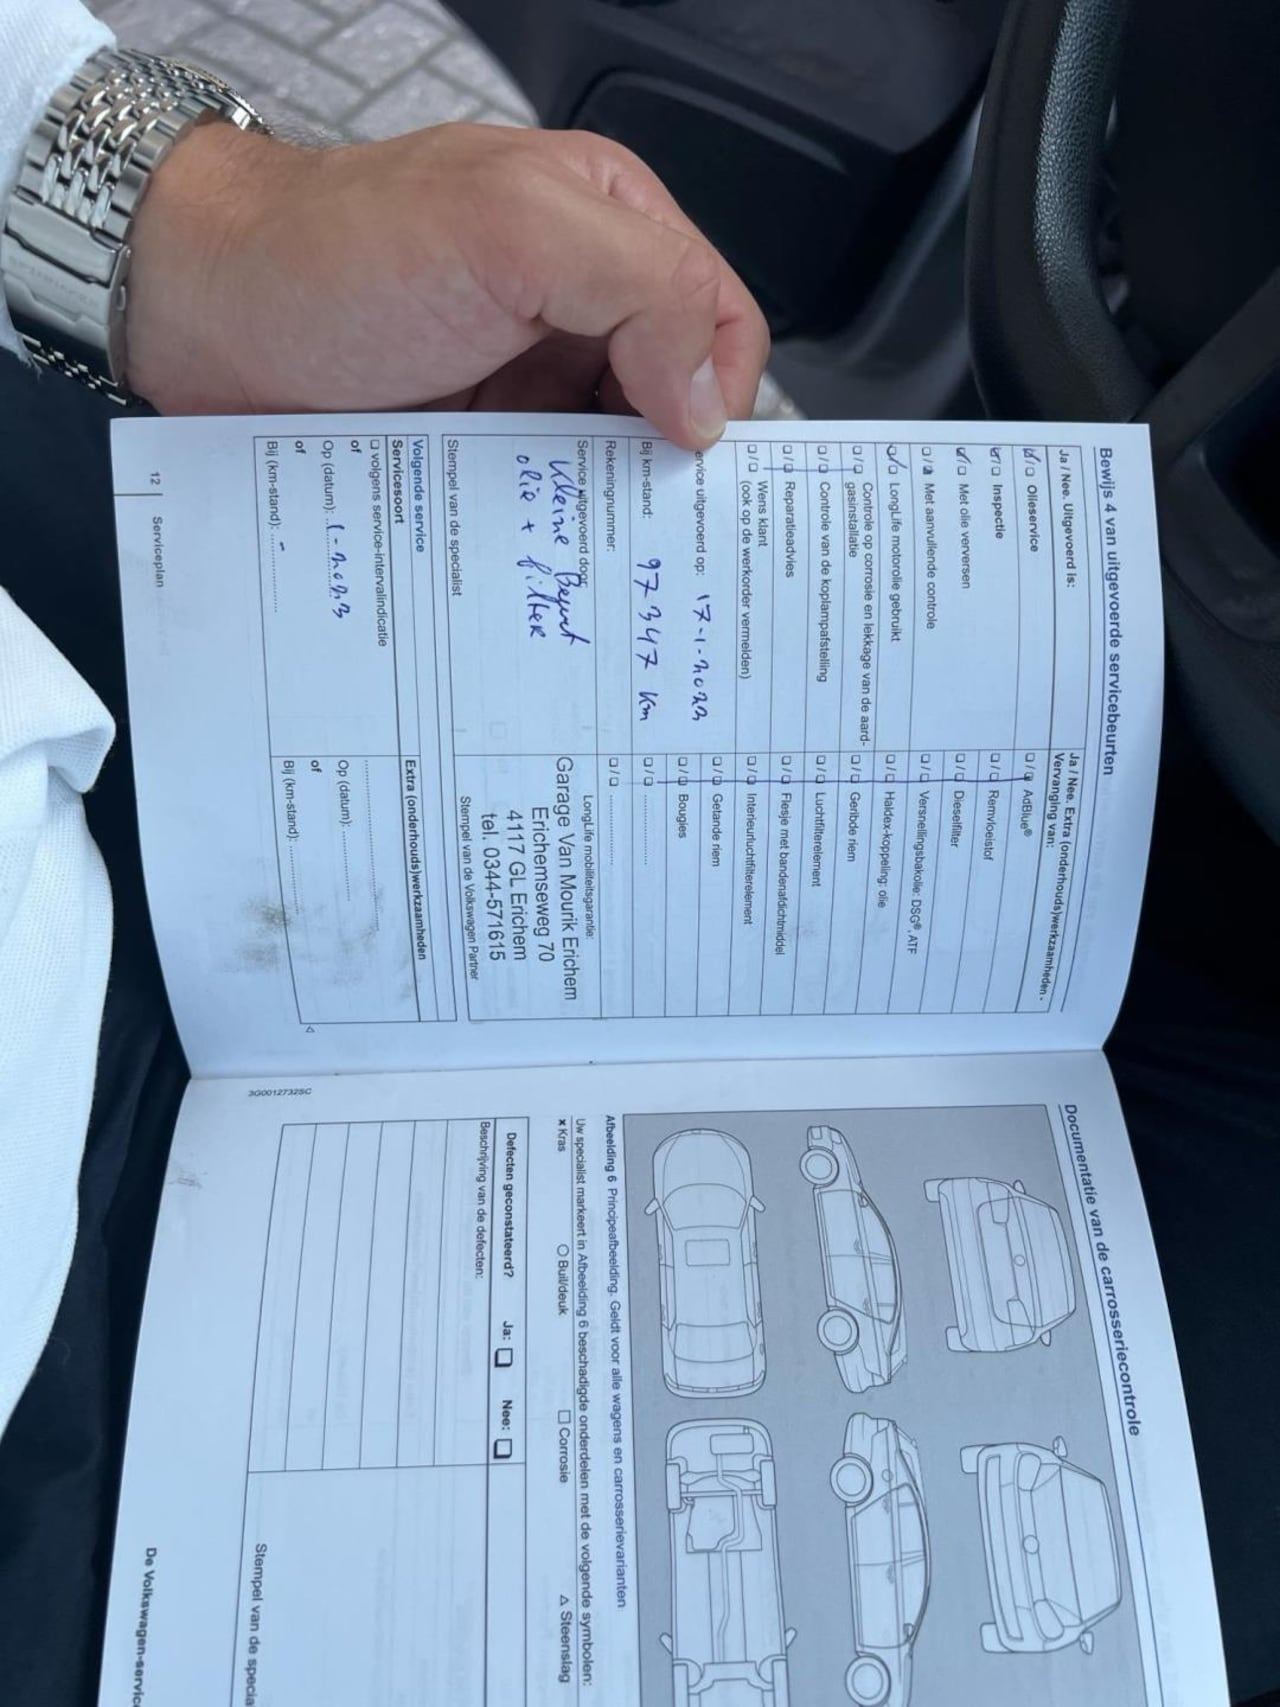 Bewijs 4 van uitgevoerde servicebeurten
Ja / Nee. Uitgevoerd is:
☑/☐ Olieservice
☑/☐ Inspectie
☑/☐ Met olie verversen
☐/☑ Met aanvullende controle
☑/☐ LongLife motorolie gebruikt
☐/☐ Controle op corrosie en lekkage van de aard-
gasinstallatie
☐/☐ Controle van de koplampafstelling
☐/☐ Reparatieadvies
☐/☐ Wens klant
(ook op de werkorder vermelden)
ervice uitgevoerd op: 17-1-2023
Bij km-stand: 97347 km
Rekeningnummer:
Service uitgevoerd door:
Kleine Beurt
olie + filter
Stempel van de specialist
Ja / Nee. Extra (onderhouds)werkzaamheden -
Vervanging van:
☐/☐ AdBlue®
☐/☐ Remvloeistof
☐/☐ Dieselfilter
☐/☐ Versnellingsbakolie: DSG®, ATF
☐/☐ Haldex-koppeling: olie
☐/☐ Geribde riem
☐/☐ Luchtfilterelement
☐/☐ Flesje met bandenafdichtmiddel
☐/☐ Interieurluchtfilterelement
☐/☐ Getande riem
☐/☐ Bougies
☐/☐ ..............
☐/☐ ..............
LongLife mobiliteitsgarantie:
Garage Van Mourik Erichem
Erichemseweg 70
4117 GL Erichem
tel. 0344-571615
Stempel van de Volkswagen Partner
Volgende service
Servicesoort
☐ volgens service-intervalindicatie
of
Op (datum): 1-2023
of
Bij (km-stand): -
Extra (onderhouds)werkzaamheden
Op (datum): ..............
of
Bij (km-stand): ..............
12 Serviceplan
Documentatie van de carrosseriecontrole
Afbeelding 6 Principeafbeelding. Geldt voor alle wagens en carrosserievarianten
Uw specialist markeert in Afbeelding 6 beschadigde onderdelen met de volgende symbolen:
× Kras ○ Buil/deuk □ Corrosie △ Steenslag
Defecten geconstateerd? Ja: ☐ Nee: ☐
Beschrijving van de defecten:
Stempel van de specia
3G0012732SC
De Volkswagen-service